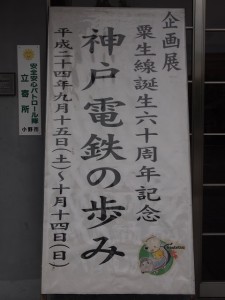 企画展
粟生線誕生六十周年記念
神戸電鉄の歩み
平成二十四年九月十五日(土)～十月十四日(日)
安全安心パトロール隊
立寄所
小野市